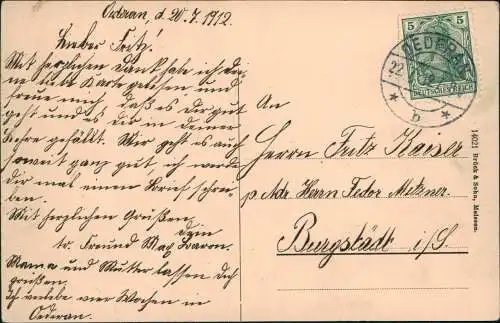 Oederan, d. 20.7.1912.
Lieber Fritz!
Mit herzlichen Dank habe ich Dei-
ne Karte gelesen und
freue mich, daß es Dir gut
geht und es Dir in deiner
Lehre gefällt. Mir geht es auch
soweit ganz gut, ich werde
dir mal einen Brief schrei-
ben.
Mit herzlichen Grüßen,
Dein
tr. Freund Max
Mama und Mutter lassen Dich
grüßen.
Ich verlebe vier Wochen in
Oederan.
An
Herrn Fritz Kaiser
p. Adr. Herrn Fedor Metzner.
Burgstädt i/S.
5 5
DEUTSCHES REICH
OEDERAN
22
* b *
14621 Brück & Sohn, Meissen.